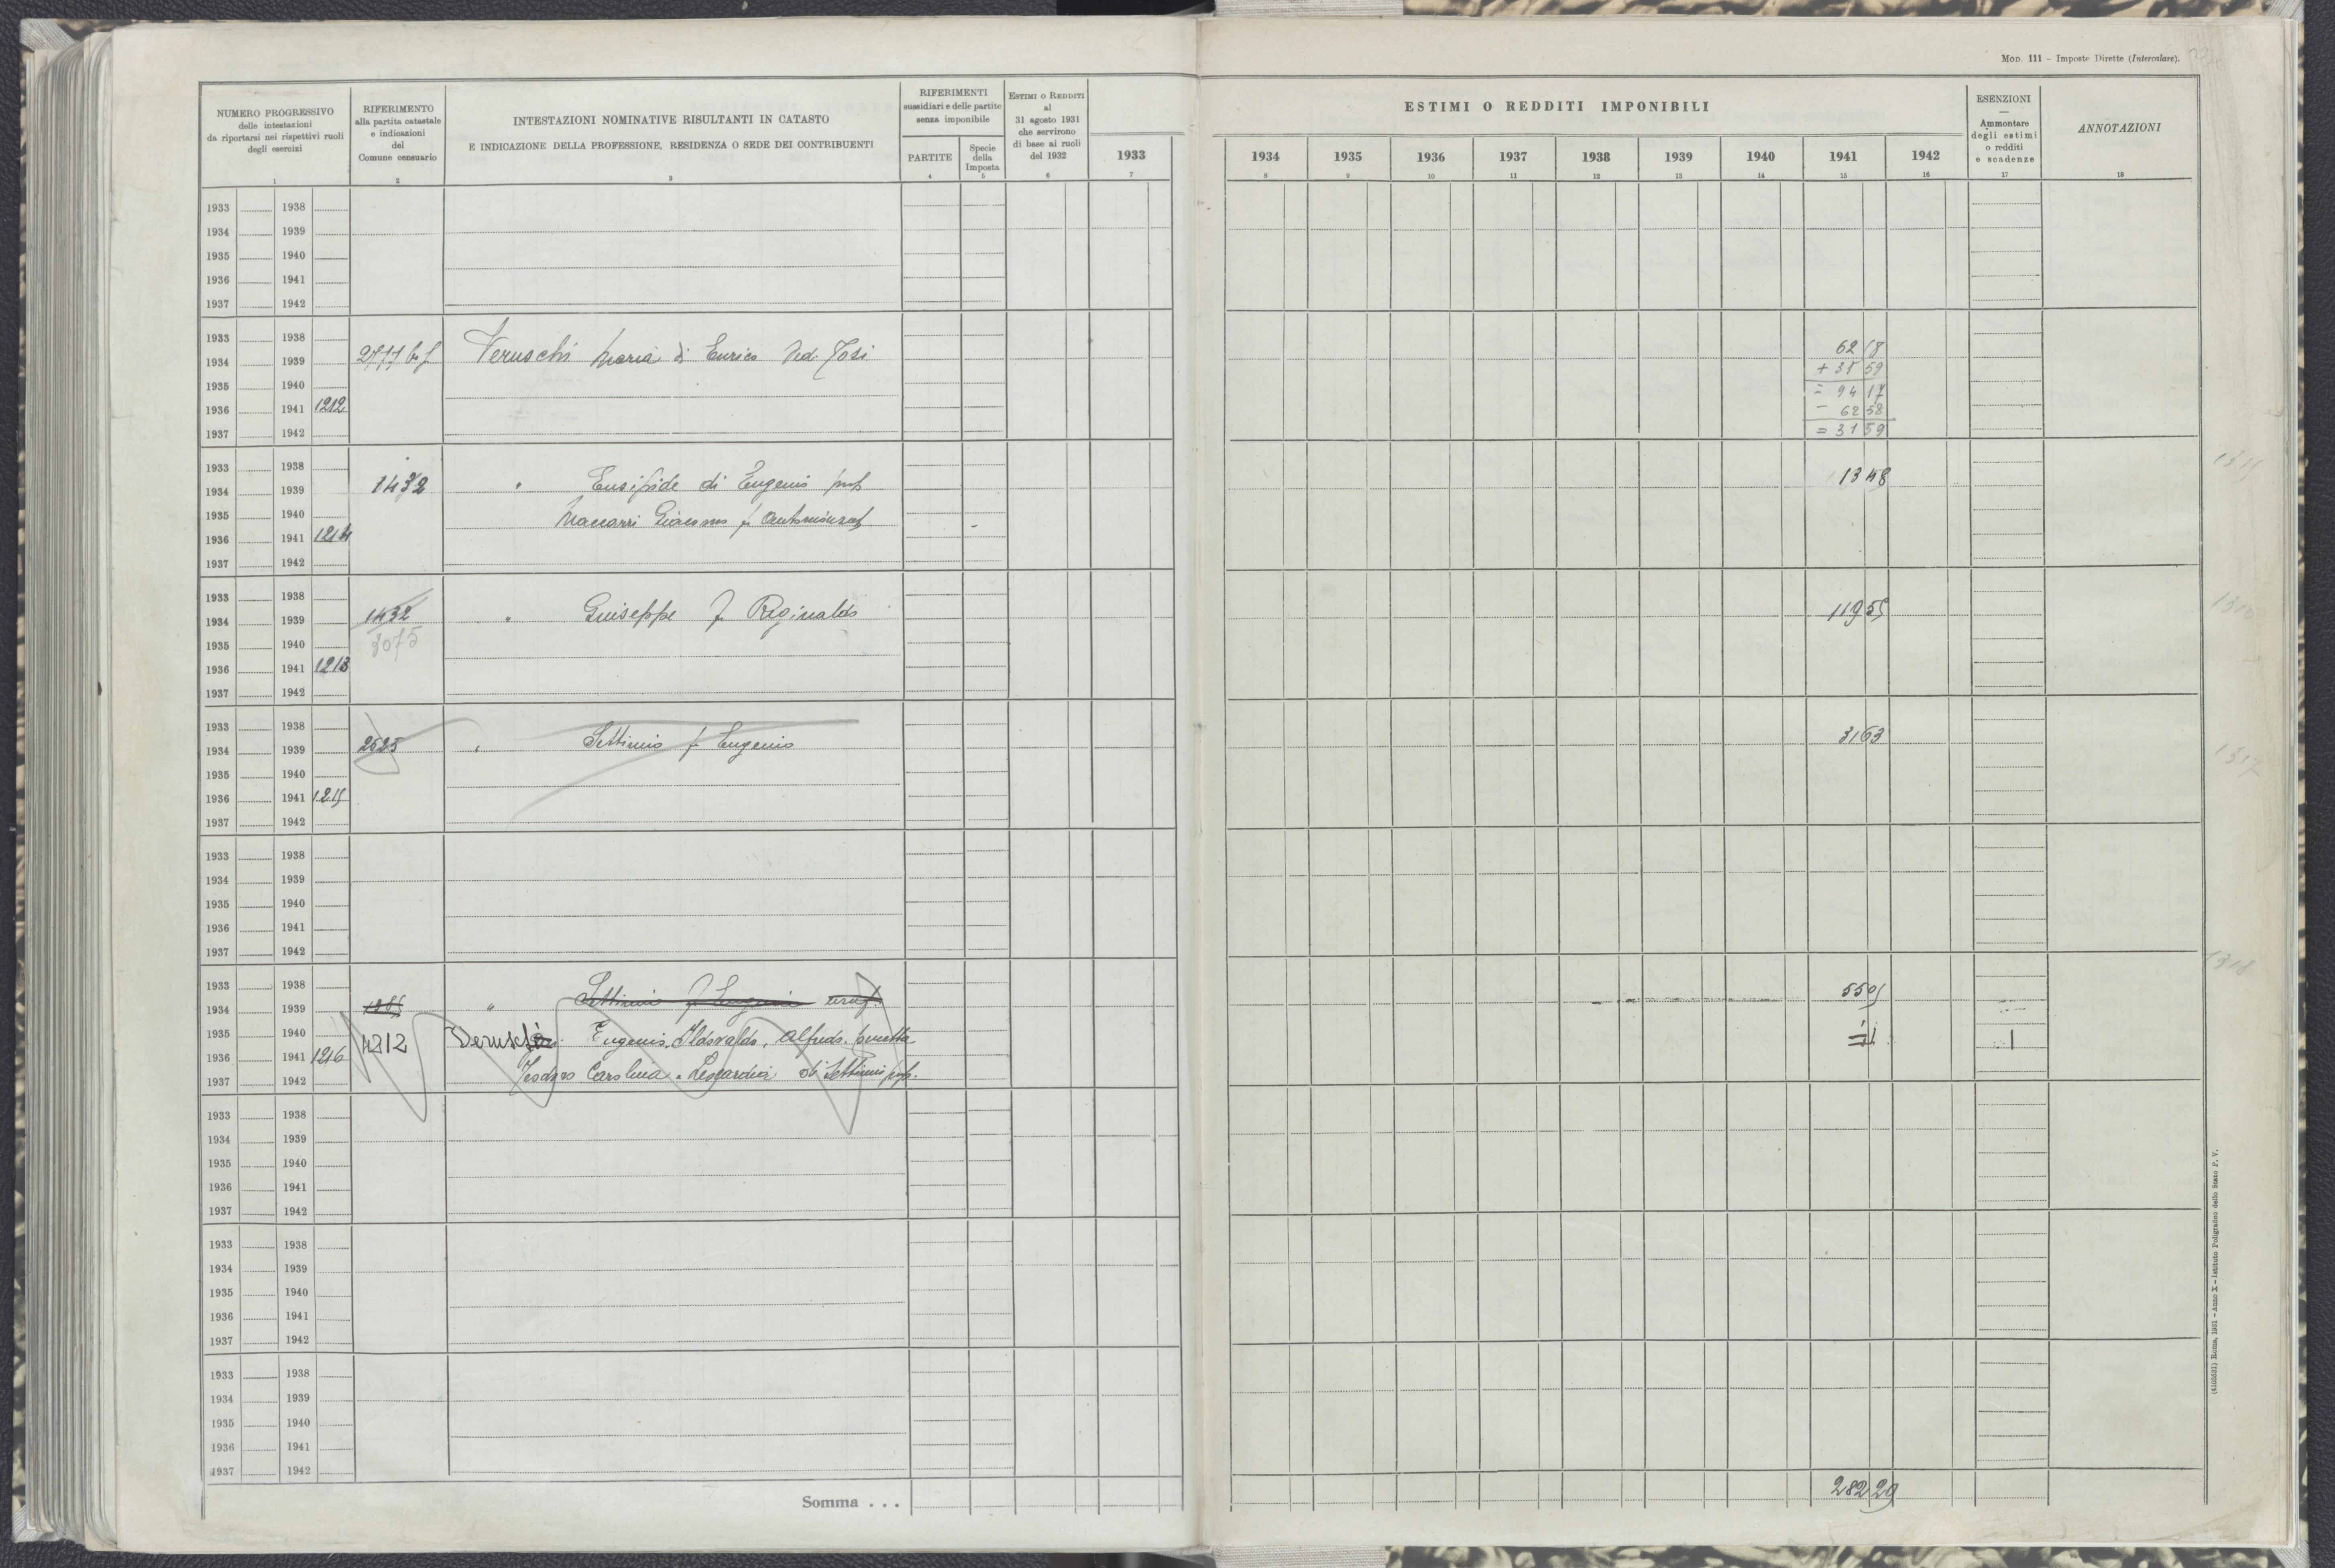 MOD. 111 – Imposte Dirette (Intercalare).
NUMERO PROGRESSIVO
delle intestazioni
da riportarsi nei rispettivi ruoli
degli esercizi
RIFERIMENTO
alla partita catastale
e indicazioni
del
Comune censuario
INTESTAZIONI NOMINATIVE RISULTANTI IN CATASTO
E INDICAZIONE DELLA PROFESSIONE, RESIDENZA O SEDE DEI CONTRIBUENTI
RIFERIMENTI
sussidiari e delle partite
senza imponibile
PARTITE
Specie
della
Imposta
ESTIMI O REDDITI
al
31 agosto 1931
che servirono
di base ai ruoli
del 1932
ESTIMI O REDDITI IMPONIBILI
1933 1934 1935 1936 1937 1938 1939 1940 1941 1942
ESENZIONI
—
Ammontare
degli estimi
o redditi
e scadenze
ANNOTAZIONI
1 2 3 4 5 6 7 8 9 10 11 12 13 14 15 16 17 18
1933 1938
1934 1939
1935 1940
1936 1941
1937 1942
1933 1938
1934 1939 Veruschi Maria di Enrico Ved. Tosi
1935 1940
1936 1941 1212
1937 1942
62 58
+ 31 59
= 94 17
– 62 58
= 31 59
1933 1938
1934 1939 1432 " di Eugenio 13 48
1935 1940 Giacomo
1936 1941 1214
1937 1942
1933 1938
1934 1939 1432 " Giuseppe f Reginaldo 119 55
1935 1940 3075
1936 1941 1213
1937 1942
1933 1938
1934 1939 2525 " Settimio f Eugenio 31 63
1935 1940
1936 1941 1215
1937 1942
1933 1938
1934 1939
1935 1940
1936 1941
1937 1942
1933 1938
1934 1939 " Settimio f Eugenio usuf. 55 05
1935 1940 4212 Eugenio, Aldovaldo, Alfredo,
1936 1941 1216
1937 1942 Teodoro Carolina e Leocardia di Settimio prop.
1933 1938
1934 1939
1935 1940
1936 1941
1937 1942
1933 1938
1934 1939
1935 1940
1936 1941
1937 1942
1933 1938
1934 1939
1935 1940
1936 1941
1937 1942
Somma . . . 282 29
1317
1318
(4105031) Roma, 1931 – Anno X – Istituto Poligrafico dello Stato P. V.